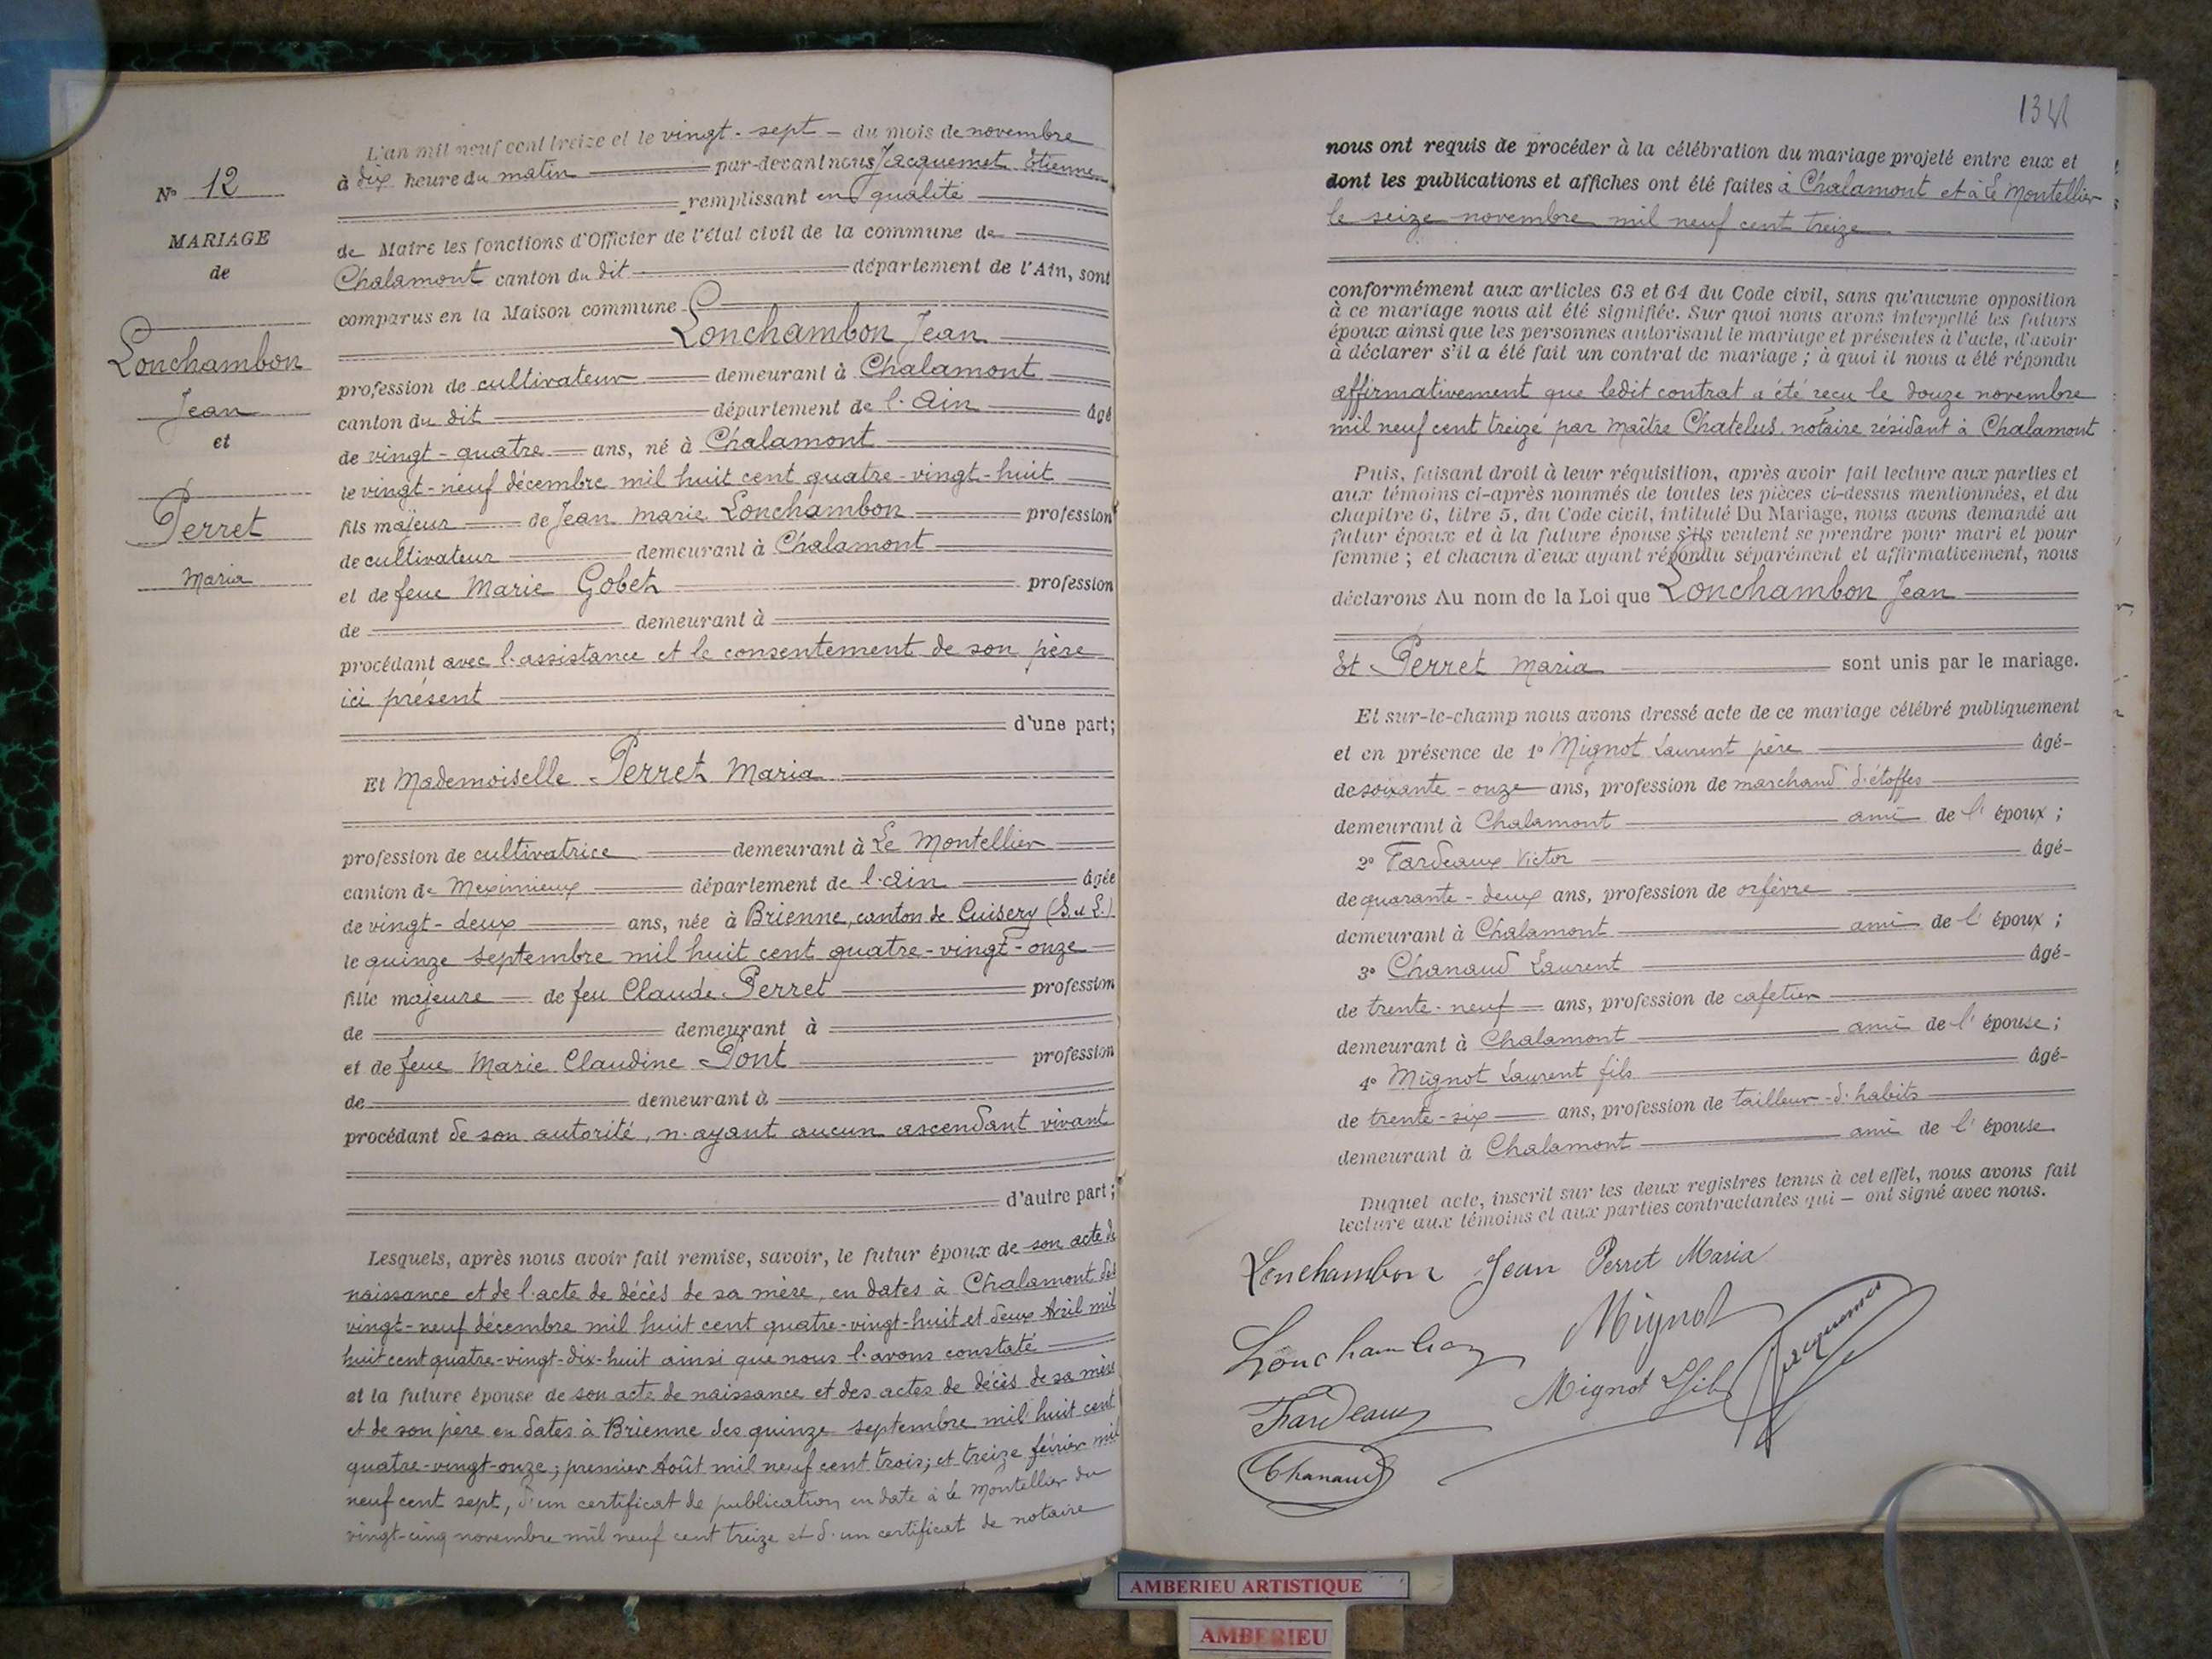 N° 12
MARIAGE
de
Lonchambon
Jean
et
Perret
Maria
L'an mil neuf cent treize et le vingt-sept du mois de novembre
à dix heure du matin par-devant nous Jacquemet Etienne
remplissant en qualité
de Maire les fonctions d'Officier de l'état civil de la commune de
Chalamont canton du dit département de l'Ain, sont
comparus en la Maison commune
Lonchambon Jean
profession de cultivateur demeurant à Chalamont
canton du dit département de l'Ain âgé
de vingt-quatre ans, né à Chalamont
le vingt-neuf décembre mil huit cent quatre-vingt-huit
fils majeur de Jean Marie Lonchambon profession
de cultivateur demeurant à Chalamont
et de feue Marie Gobet profession
de demeurant à
procédant avec l'assistance et le consentement de son père
ici présent
d'une part;
Et Mademoiselle Perret Maria
profession de cultivatrice demeurant à Le Montellier
canton de Meximieux département de l'Ain âgée
de vingt-deux ans, née à Brienne, canton de Cuisery (S. et L.)
le quinze septembre mil huit cent quatre-vingt-onze
fille majeure de feu Claude Perret profession
de demeurant à
et de feue Marie Claudine Pont profession
de demeurant à
procédant de son autorité, n'ayant aucun ascendant vivant
d'autre part;
Lesquels, après nous avoir fait remise, savoir, le futur époux de son acte de
naissance et de l'acte de décès de sa mère, en dates à Chalamont des
vingt-neuf décembre mil huit cent quatre-vingt-huit et deux Avril mil
huit cent quatre-vingt-dix-huit ainsi que nous l'avons constaté
et la future épouse de son acte de naissance et des actes de décès de sa mère
et de son père en dates à Brienne des quinze septembre mil huit cent
quatre-vingt-onze; premier Août mil neuf cent trois; et treize février mil
neuf cent sept, d'un certificat de publication en date à Le Montellier du
vingt-cinq novembre mil neuf cent treize et d'un certificat de notaire
nous ont requis de procéder à la célébration du mariage projeté entre eux et
dont les publications et affiches ont été faites à Chalamont et à Le Montellier
le seize novembre mil neuf cent treize
conformément aux articles 63 et 64 du Code civil, sans qu'aucune opposition
à ce mariage nous ait été signifiée. Sur quoi nous avons interpellé les futurs
époux ainsi que les personnes autorisant le mariage et présentes à l'acte, d'avoir
à déclarer s'il a été fait un contrat de mariage; à quoi il nous a été répondu
affirmativement que ledit contrat a été reçu le douze novembre
mil neuf cent treize par Maître Chatelus notaire résidant à Chalamont
Puis, faisant droit à leur réquisition, après avoir fait lecture aux parties et
aux témoins ci-après nommés de toutes les pièces ci-dessus mentionnées, et du
chapitre 6, titre 5, du Code civil, intitulé Du Mariage, nous avons demandé au
futur époux et à la future épouse s'ils veulent se prendre pour mari et pour
femme; et chacun d'eux ayant répondu séparément et affirmativement, nous
déclarons Au nom de la Loi que Lonchambon Jean
Et Perret Maria sont unis par le mariage.
Et sur-le-champ nous avons dressé acte de ce mariage célébré publiquement
et en présence de 1° Mignot Laurent père âgé
de soixante-onze ans, profession de marchand d'étoffes
demeurant à Chalamont ami de l'époux;
2° Fardeaux Victor âgé
de quarante-deux ans, profession de orfèvre
demeurant à Chalamont ami de l'époux;
3° Chanaud Laurent âgé
de trente-neuf ans, profession de cafetier
demeurant à Chalamont ami de l'épouse;
4° Mignot Laurent fils âgé
de trente-six ans, profession de tailleur d'habits
demeurant à Chalamont ami de l'épouse
Duquel acte, inscrit sur les deux registres tenus à cet effet, nous avons fait
lecture aux témoins et aux parties contractantes qui ont signé avec nous.
Lonchambon Jean Perret Maria
Lonchambon Mignot
Jacquemet
Mignot L fils
Fardeaux
Chanaud
AMBERIEU ARTISTIQUE
AMBERIEU